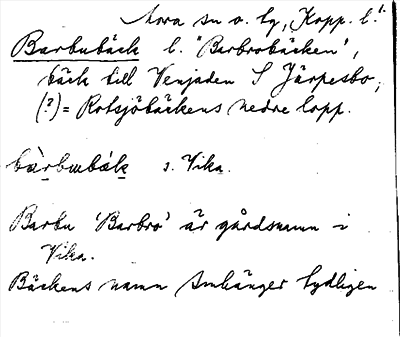 Mora sn o. tg, Kopp. l.
Barbubäck l. "Barbrobäcken",
bäck till Venjaden S Järpesbo,
(?) = Rotsjöbäckens nedre lopp.
bàrbubák s. Vika.
Barbu 'Barbro' är gårdsnamn i
Vika.
Bäckens namn omhänger tydligen